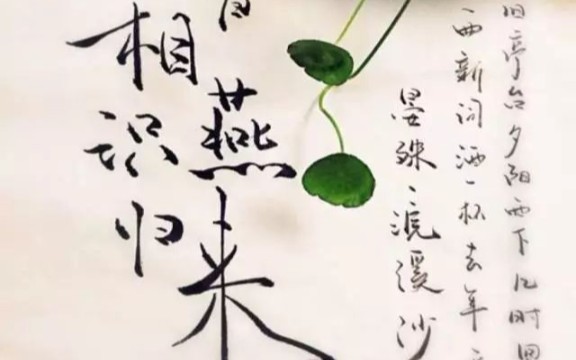 旧亭台夕阳西下几时回
曲新词酒一杯去年
晏殊、浣溪沙
燕来
相识归